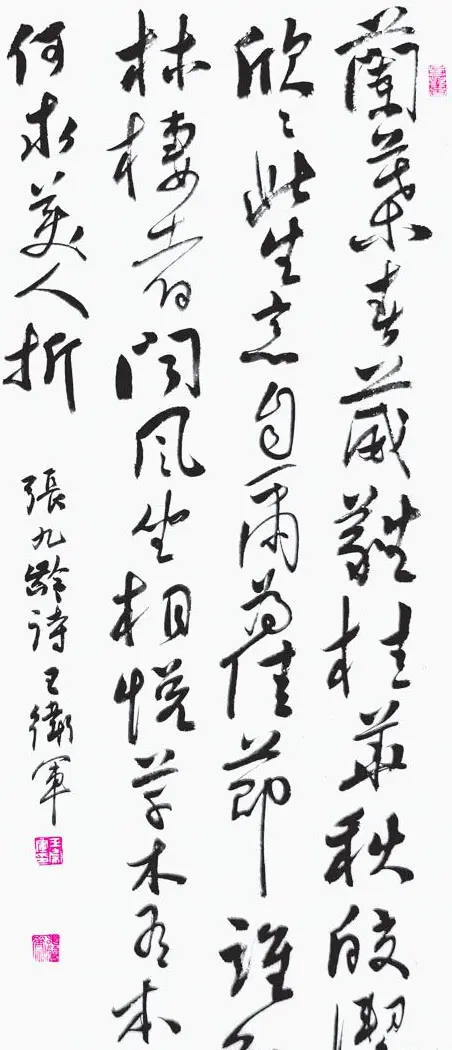 蘭葉春葳蕤桂華秋皎潔
欣〻此生意自爾為佳節誰
林棲者聞風坐相悦草木有本
何求美人折
張九齡詩王衛軍